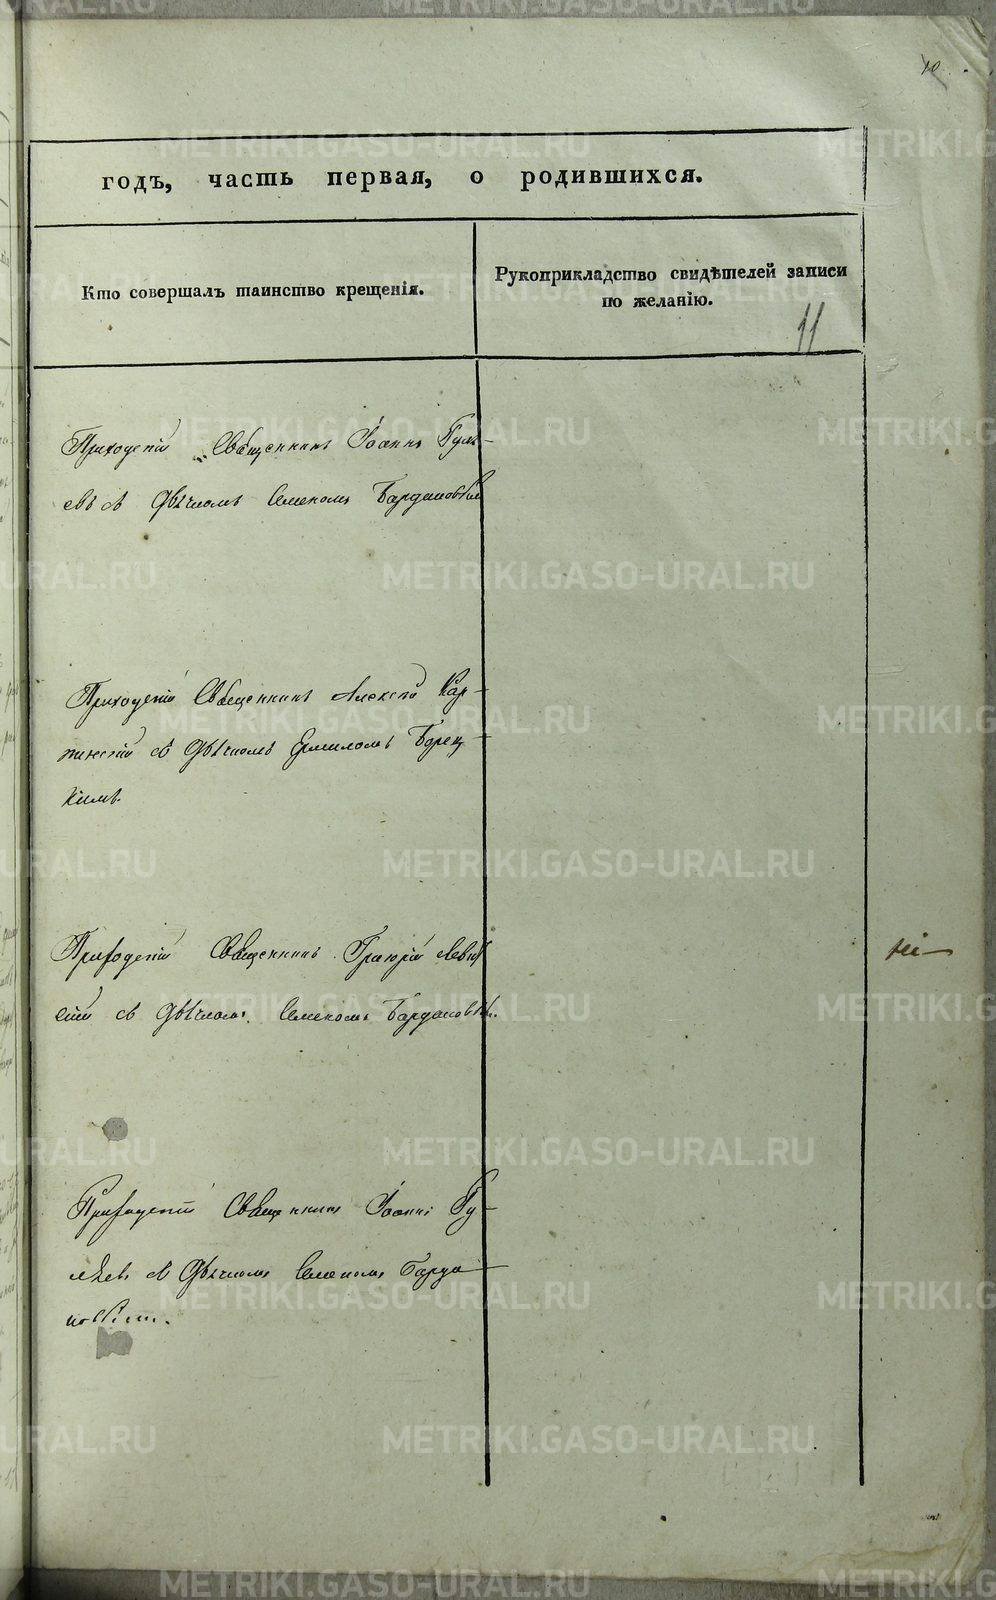 10
годъ, часть первая, о родившихся.
Кто совершалъ таинство крещенія.
Рукоприкладство свидѣтелей записи
по желанію.
11
Приходскій Священникъ Іоаннъ Гуля-
евъ съ Дьячкомъ Семеномъ
Приходскій Священникъ Алексій Кар-
пинскій съ Дьячкомъ Ермиломъ Борец-
кимъ.
Приходскій Священникъ Григорій Левит-
скій съ Дьячкомъ Семеномъ
Приходскій Священникъ Іоаннъ Гу-
ляевъ съ Дьячкомъ Семеномъ
METRIKI.GASO-URAL.RU